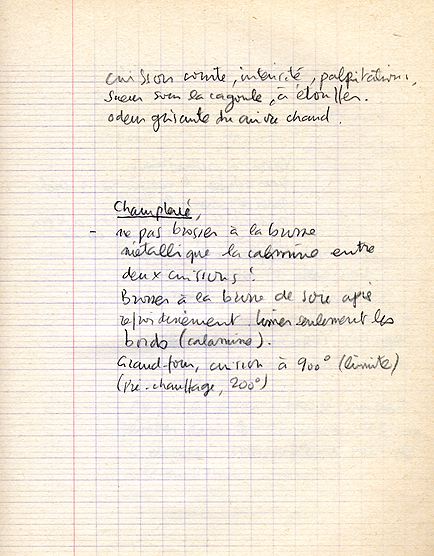 cuisson courte, intensité, palpitations,
sueur sous la cagoule, à étouffer.
odeur grisante du cuivre chaud.
Champlevé,
- ne pas brosser à la brosse
métallique la calamine entre
deux cuissons !
Brosser à la brosse de soie après
refroidissement. limer seulement les
bords (calamine).
Grand-four, cuisson à 900° (limite)
(Pré-chauffage, 200°)